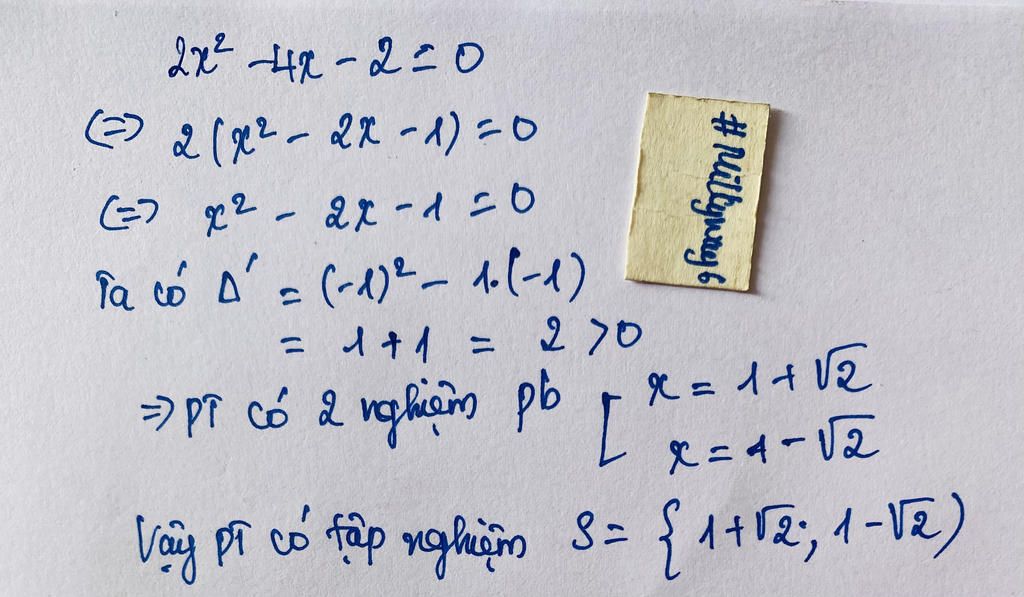 2x² - 4x - 2 = 0
(=) 2(x² - 2x - 1) = 0
(=) x² - 2x - 1 = 0
Ta có Δ' = (-1)² - 1.(-1)
= 1 + 1 = 2 > 0
=> pT có 2 nghiệm pb [ x = 1 + √2
x = 1 - √2
Vậy pT có tập nghiệm S = { 1 + √2; 1 - √2 )